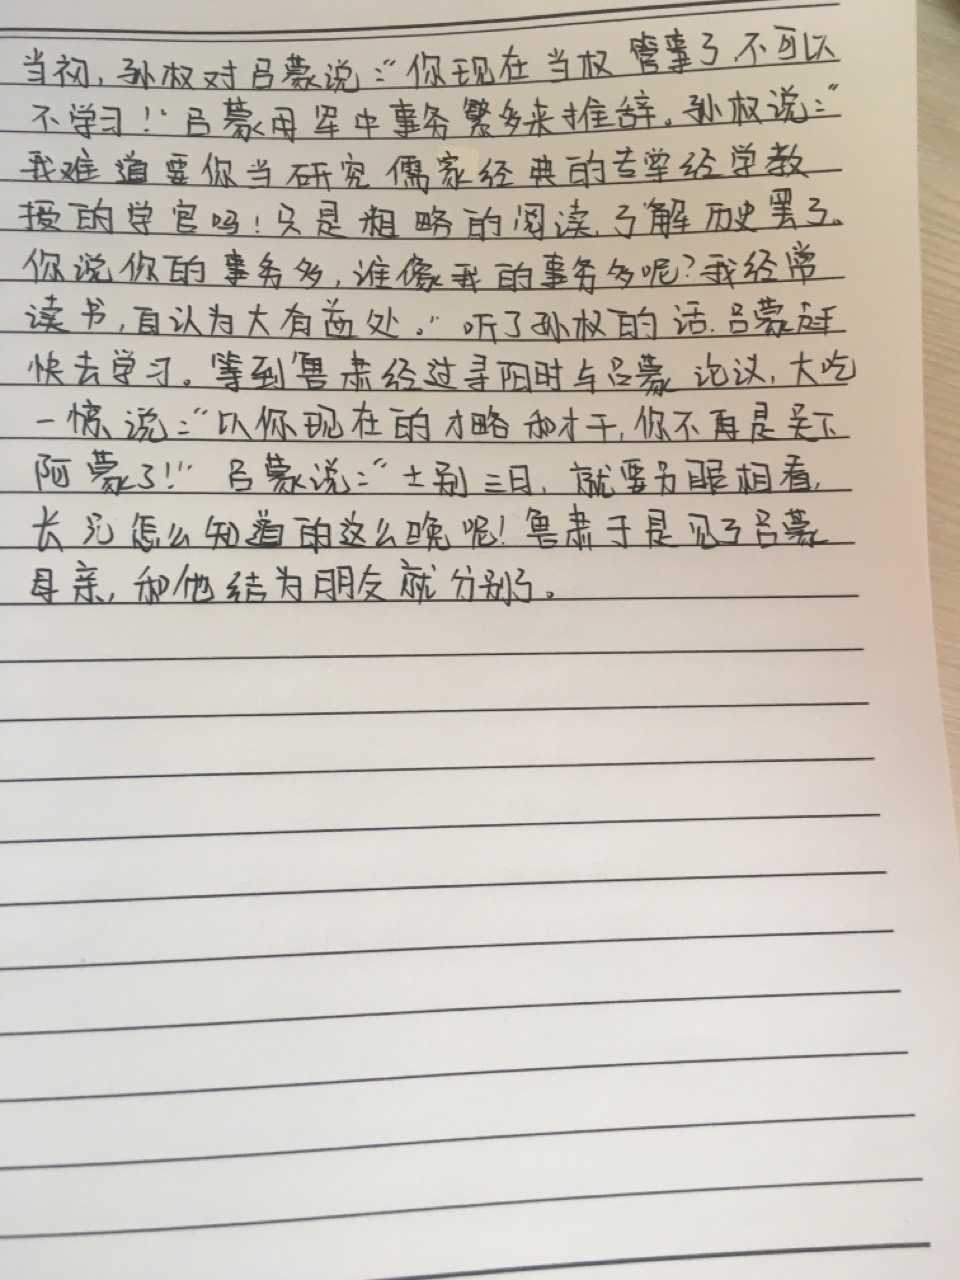 当初，孙权对吕蒙说："你现在当权管事了不可以
不学习！"吕蒙用军中事务繁多来推辞。孙权说："
我难道要你当研究儒家经典的专掌经学教
授的学官吗！只是粗略的阅读，了解历史罢了。
你说你的事务多，谁像我的事务多呢？我经常
读书，自认为大有益处。"听了孙权的话，吕蒙
快去学习。等到鲁肃经过寻阳时与吕蒙论议，大吃
一惊说："以你现在的才略和才干，你不再是吴下
阿蒙了！"吕蒙说："士别三日，就要另眼相看，
长兄怎么知道的这么晚呢！鲁肃于是见了吕蒙
母亲，和他结为朋友就分别了。